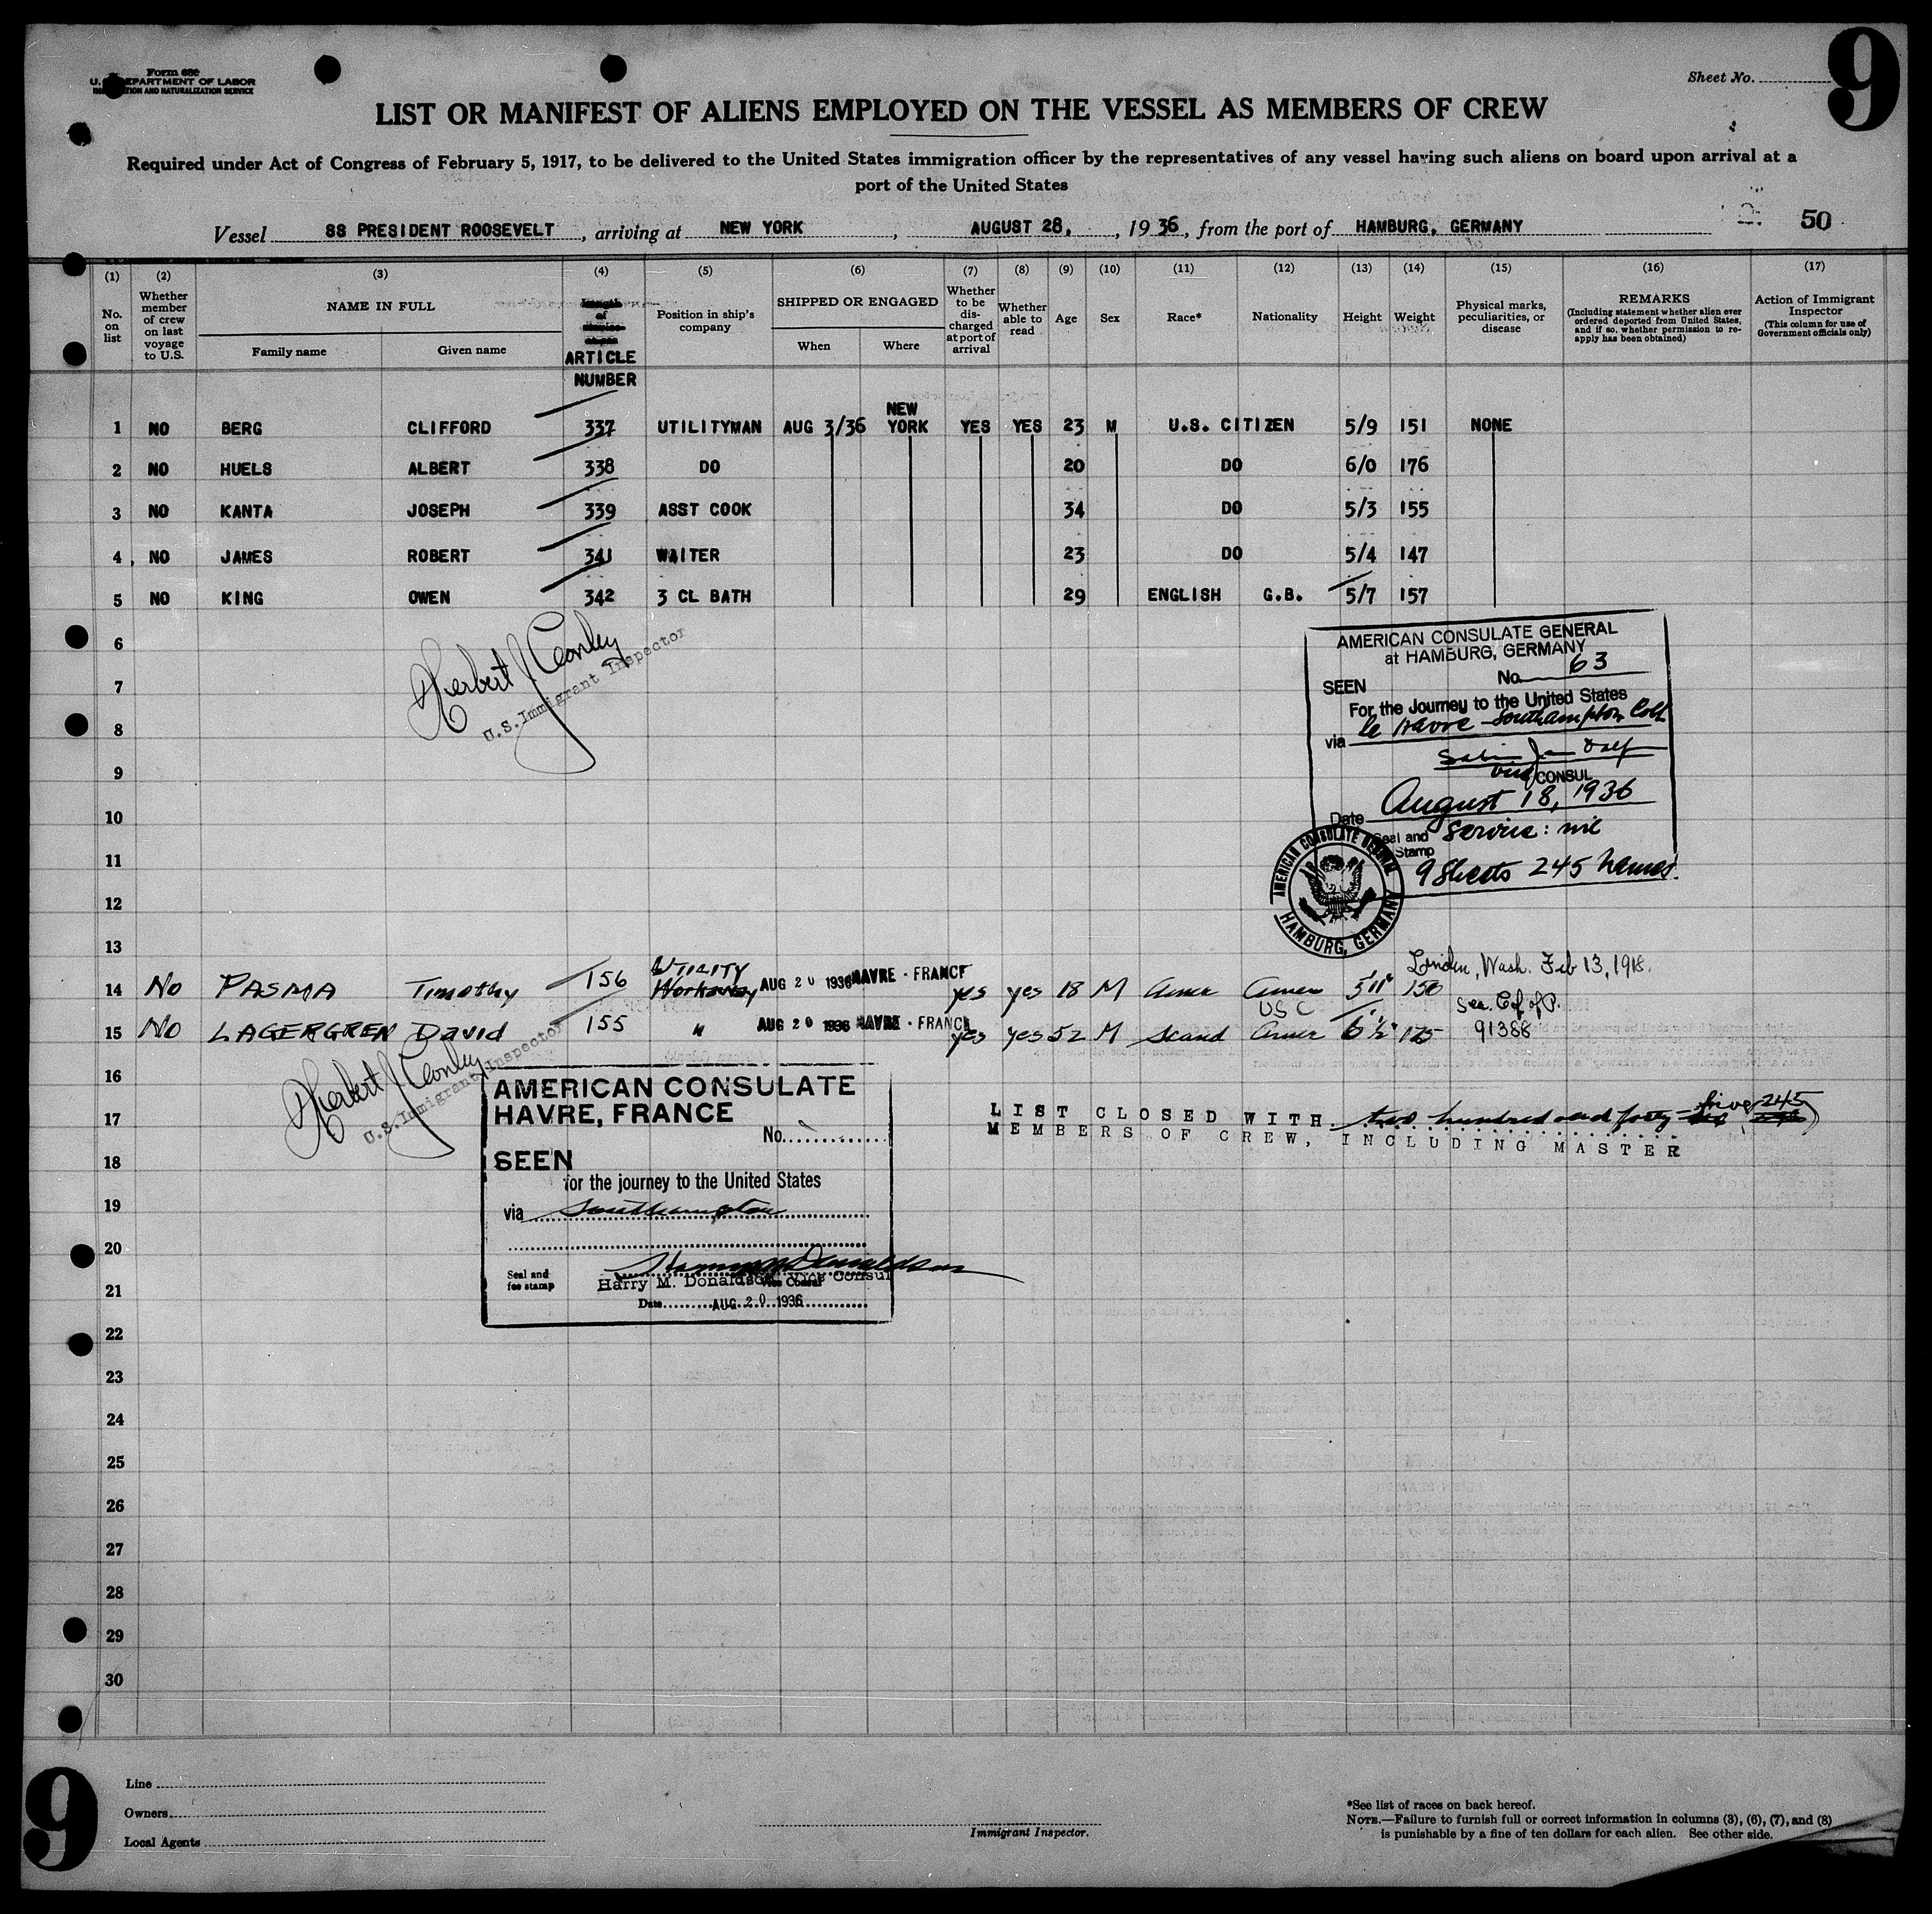 Form 680
U. S. DEPARTMENT OF LABOR
IMMIGRATION AND NATURALIZATION SERVICE
Sheet No.
9
LIST OR MANIFEST OF ALIENS EMPLOYED ON THE VESSEL AS MEMBERS OF CREW
Required under Act of Congress of February 5, 1917, to be delivered to the United States immigration officer by the representatives of any vessel having such aliens on board upon arrival at a
port of the United States
Vessel SS PRESIDENT ROOSEVELT, arriving at NEW YORK, AUGUST 28, 1936, from the port of HAMBURG, GERMANY
50
(1) (2) (3) (4) (5) (6) (7) (8) (9) (10) (11) (12) (13) (14) (15) (16) (17)
No. on list
Whether member of crew on last voyage to U.S.
NAME IN FULL
Family name Given name
ARTICLE NUMBER
Position in ship's company
SHIPPED OR ENGAGED
When Where
Whether to be discharged at port of arrival
Whether able to read
Age
Sex
Race*
Nationality
Height
Weight
Physical marks, peculiarities, or disease
REMARKS
(Including statement whether alien ever ordered deported from United States, and if so, whether permission to re-apply has been obtained)
Action of Immigrant Inspector
(This column for use of Government officials only)
1 NO BERG CLIFFORD 337 UTILITYMAN AUG 3/36 NEW YORK YES YES 23 M U.S. CITIZEN 5/9 151 NONE
2 NO HUELS ALBERT 338 DO 20 DO 6/0 176
3 NO KANTA JOSEPH 339 ASST COOK 34 DO 5/3 155
4 NO JAMES ROBERT 341 WAITER 23 DO 5/4 147
5 NO KING OWEN 342 3 CL BATH 29 ENGLISH G.B. 5/7 157
6
7
8
9
10
11
12
13
Herbert J Conley
U.S. Immigrant Inspector
AMERICAN CONSULATE GENERAL
at HAMBURG, GERMANY
No. 63
SEEN
For the Journey to the United States
via le Havre Southampton Cobh
Vice CONSUL
Date August 18, 1936
Seal and Stamp
Service: nil
9 Sheets 245 names.
AMERICAN CONSULATE GENERAL
HAMBURG, GERMANY
Linden, Wash. Feb 13, 1918.
14 No PASMA Timothy 156 UTILITY Workaway AUG 20 1936 HAVRE - FRANCE yes yes 18 M Amer Amer 5'11" 150
USC
Sea. Cf of P.
15 No LAGERGREN David 155 " AUG 20 1936 HAVRE - FRANCE yes yes 52 M Scand Amer 6'½" 175 91388
Herbert J Conley
U.S. Immigrant Inspector
16
17
18
19
20
21
22
23
24
25
26
27
28
29
30
AMERICAN CONSULATE
HAVRE, FRANCE
No.
SEEN
for the journey to the United States
via Southampton
Harry M. Donaldson
Seal and fee stamp
Harry M. Donaldson, Vice Consul
Vice Consul
Date AUG 20 1936
LIST CLOSED WITH two hundred and forty-five 245
MEMBERS OF CREW, INCLUDING MASTER
9
Line
Owners
Local Agents
Immigrant Inspector.
*See list of races on back hereof.
NOTE.—Failure to furnish full or correct information in columns (3), (6), (7), and (8)
is punishable by a fine of ten dollars for each alien. See other side.